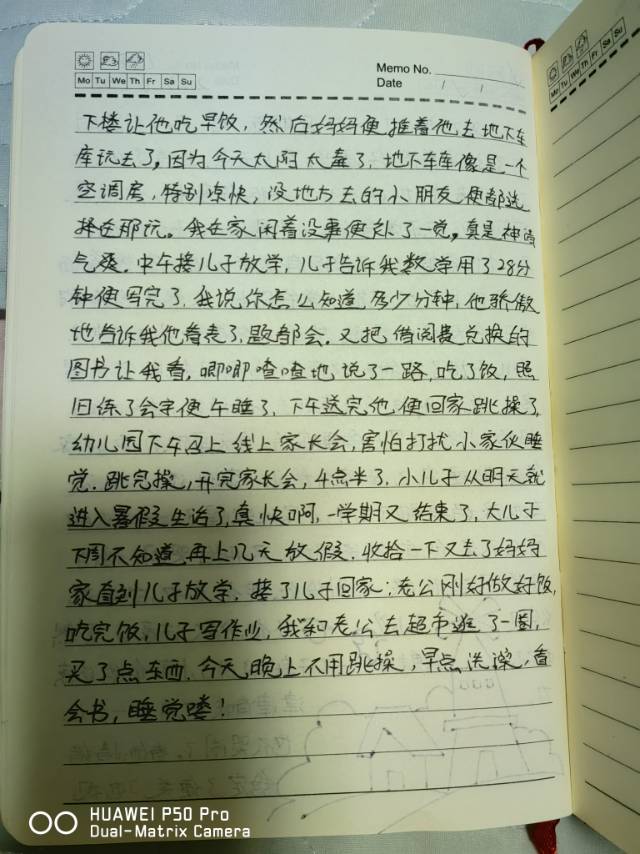 Mo Tu We Th Fr Sa Su
Memo No.
Date / /
下楼让他吃早饭，然后妈妈便推着他去地下车
库玩去了，因为今天太阳太毒了，地下车库像是一个
空调房，特别凉快，没地方去的小朋友便都选
择在那玩。我在家闲着没事便补了一觉，真是神清
气爽。中午接儿子放学，儿子告诉我数学用了28分
钟便写完了，我说你怎么知道多少分钟，他骄傲
地告诉我他看表了，题都会。又把借阅卡兑换的
图书让我看，唧唧喳喳地说了一路，吃了饭，照
旧练了会字便午睡了，下午送完他便回家跳操了，
幼儿园下午马上线上家长会，害怕打扰小家伙睡
觉。跳完操，开完家长会，4点半了，小儿子从明天就
进入暑假生活了，真快啊，一学期又结束了，大儿子
下周不知道再上几天放假．收拾一下又去了妈妈
家直到儿子放学．接了儿子回家；老公刚好做好饭，
吃完饭，儿子写作业，我和老公去超市逛了一圈，
买了点东西．今天晚上不用跳操，早点洗澡，看
会书，睡觉喽！
Mo Tu We Th Fr Sa Su
HUAWEI P50 Pro
Dual-Matrix Camera